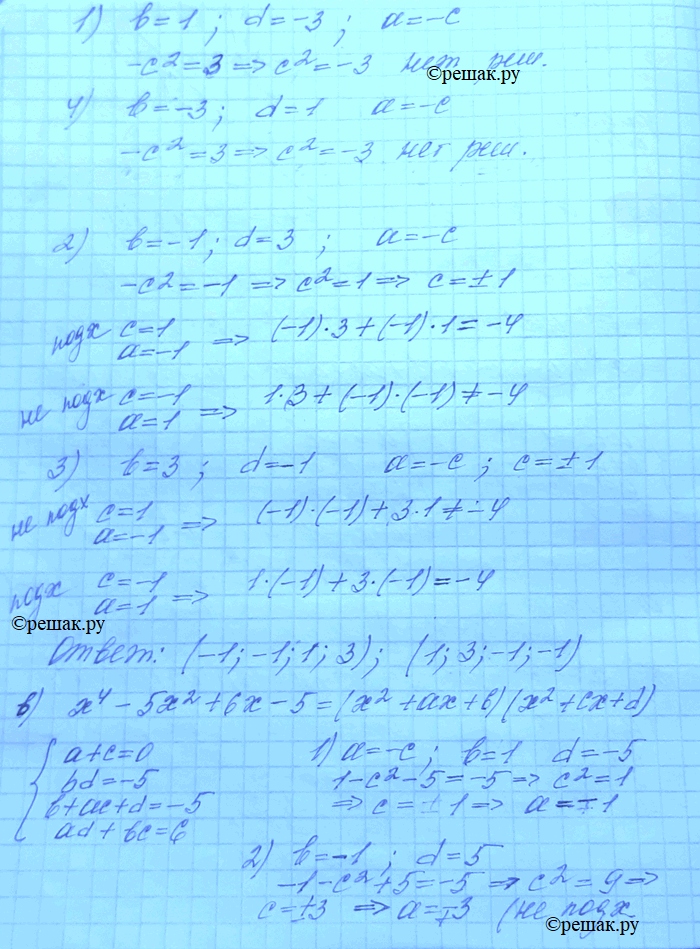 1) в=1 ; d=-3 ; a=-c
-c²=3 => c²=-3 нет реш.
©решак.ру
4) в=-3 ; d=1 a=-c
-c²=3 => c²=-3 нет реш.
©решак.ру
2) в=-1 ; d=3 ; a=-c
-c²=-1 => c²=1 => c=±1
подх c=1
a=-1 => (-1)·3+(-1)·1=-4
не подх c=-1
a=1 => 1·3+(-1)·(-1)≠-4
3) в=3 ; d=-1 a=-c ; c=±1
не подх c=1
a=-1 => (-1)·(-1)+3·1≠-4
подх c=-1
a=1 => 1·(-1)+3·(-1)=-4
©решак.ру
Ответ: (-1;-1;1;3); (1;3;-1;-1)
в) x⁴-5x²+6x-5=(x²+ax+в)(x²+cx+d)
{ a+c=0
bd=-5
в+ac+d=-5
ad+bc=6
1) a=-c ; в=1 d=-5
1-c²-5=-5 => c²=1
=> c=±1 => a=∓1
2) в=-1 ; d=5
-1-c²+5=-5 => c²=9 =>
c=±3 => a=∓3 (не подх
©решак.ру